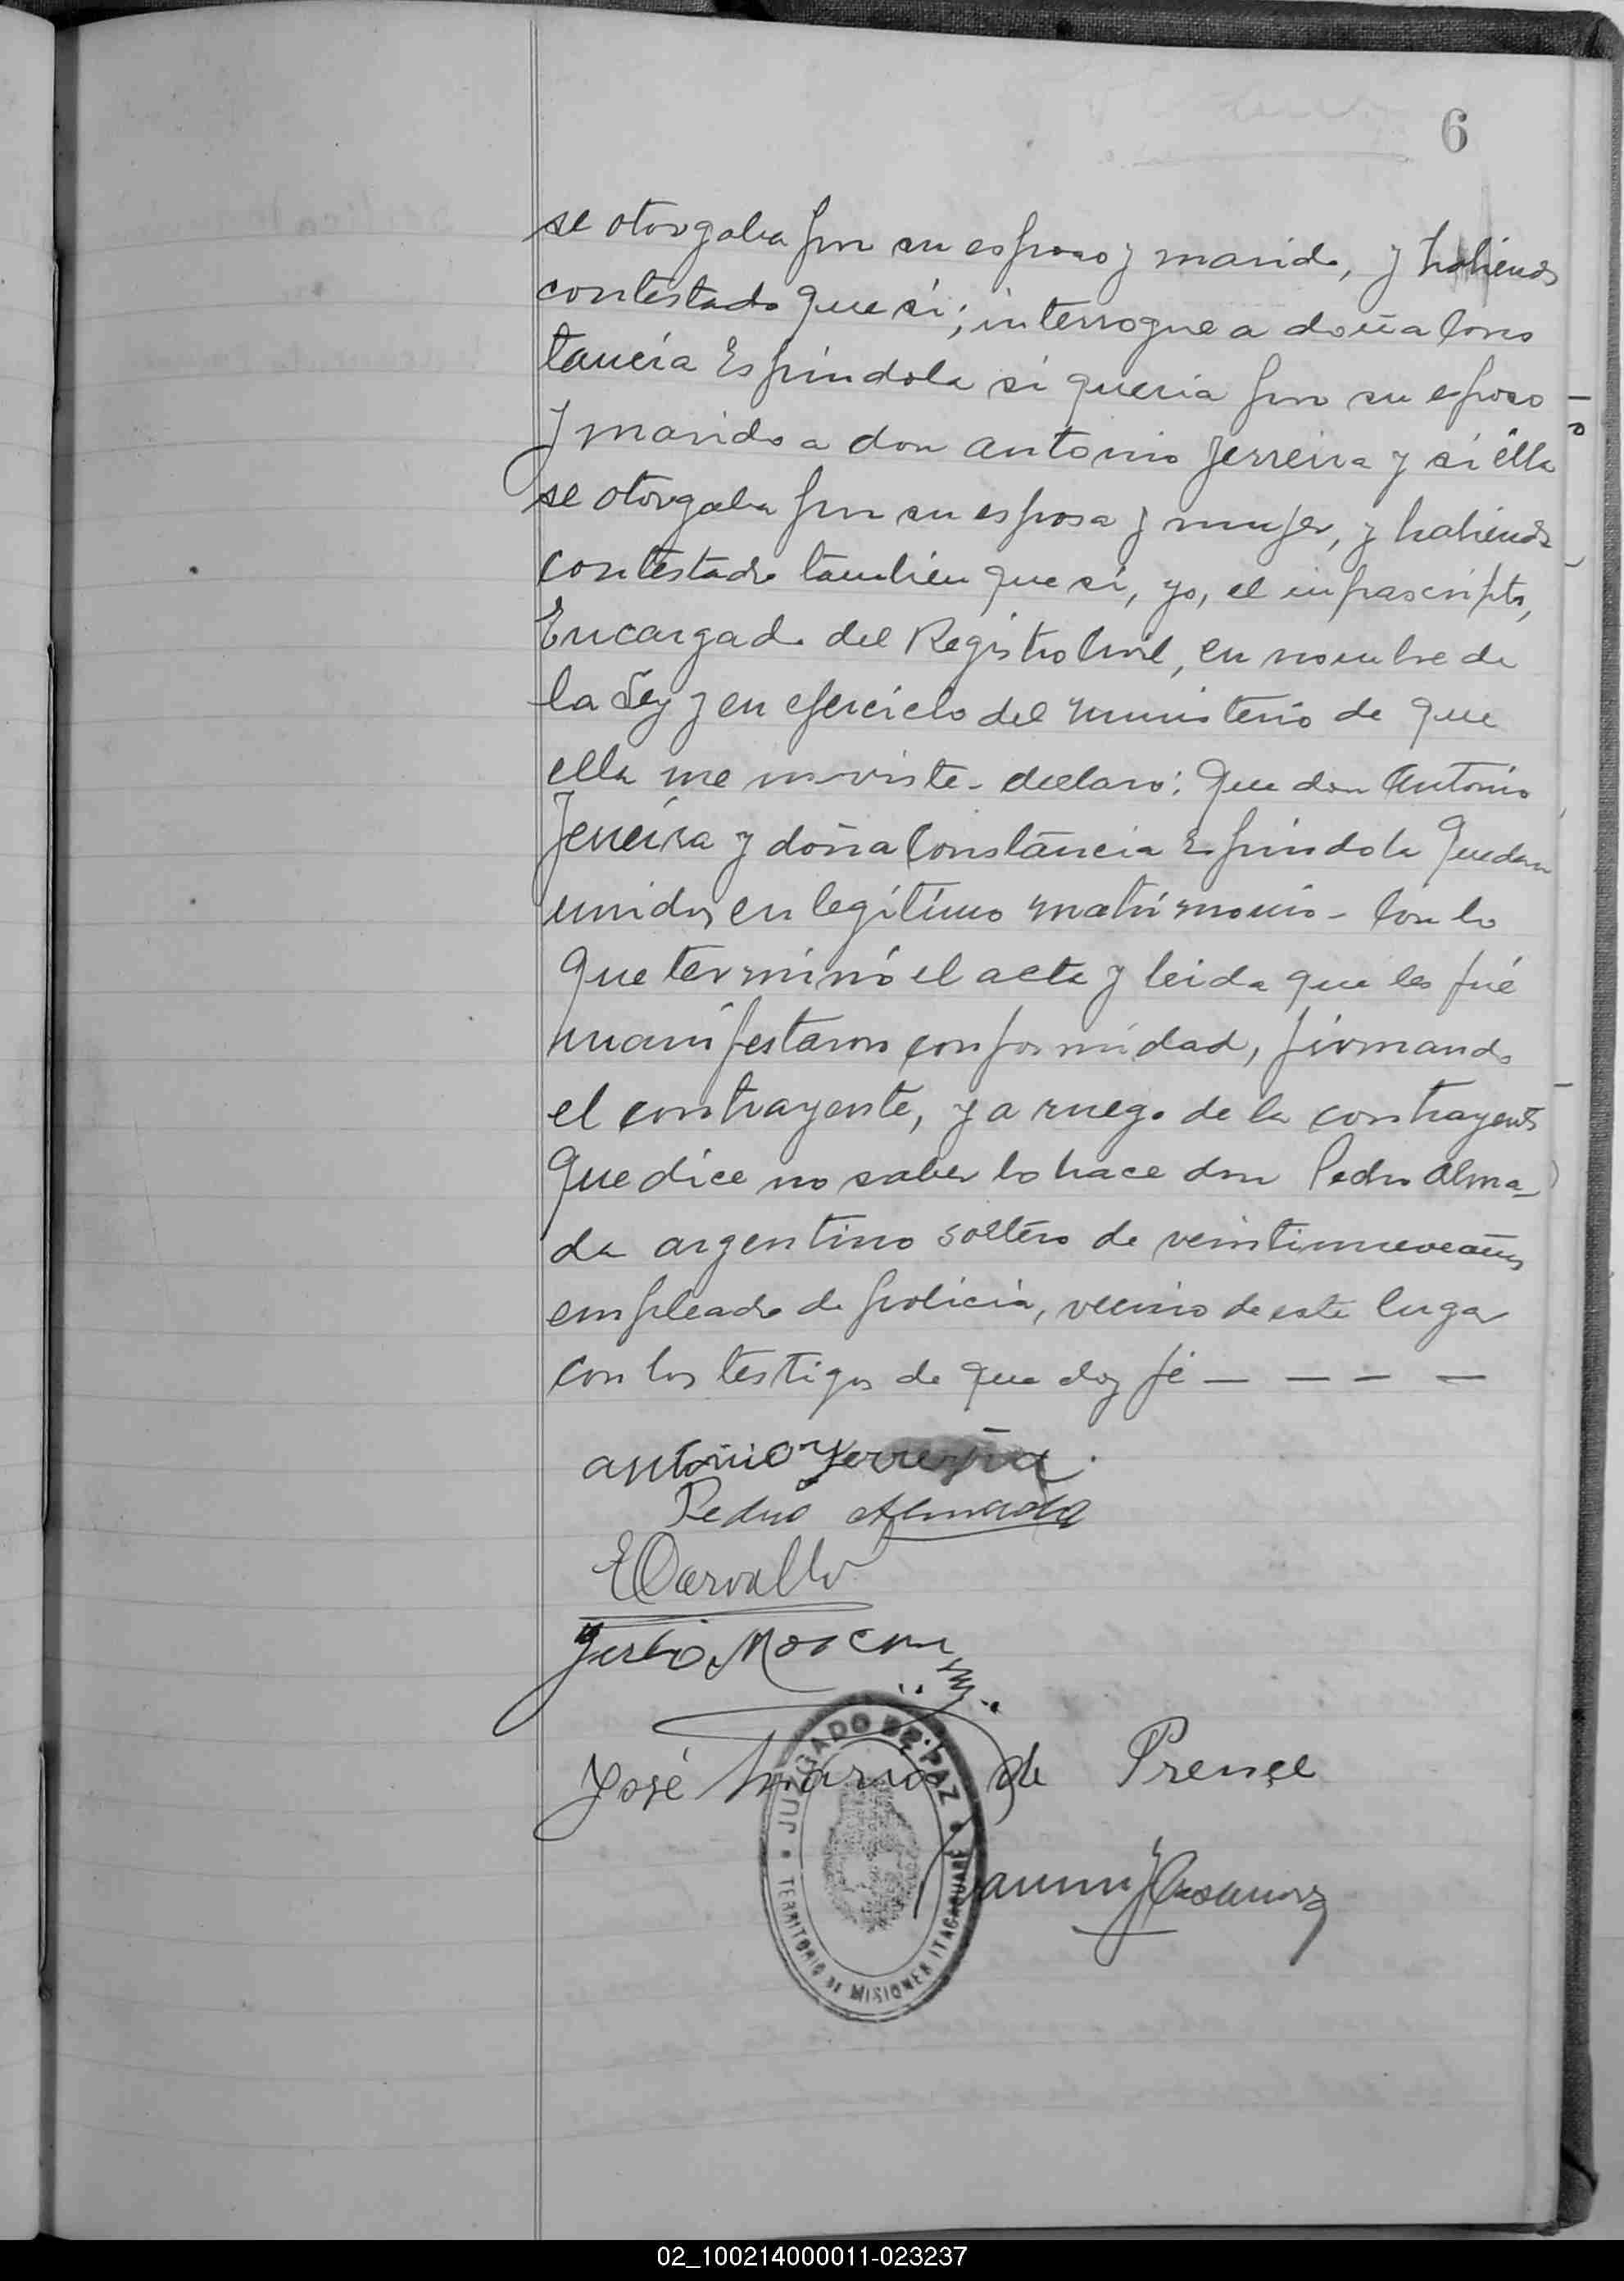 6
se otorgaba por su esposo y marido, y habiendo
contestado que sí; interrogue a doña Cons
tancia Espindola si queria por su esposo
y marido a don Antonio Ferreira y si ella
se otorgaba por su esposa y mujer, y habiendo
contestado tambien que sí, yo, el infrascripto,
Encargado del Registro Civil, en nombre de
la Ley y en ejercicio del ministerio de que
ella me inviste - declaro: Que don Antonio
Ferreira y doña Constancia Espindola quedan
unidos en legítimo matrimonio - Con lo
que terminó el acta y leida que les fué
manifestaron conformidad, firmando
el contrayente, y a ruego de la contrayente
que dice no saber lo hace don Pedro Alma-
da argentino soltero de veintinueve años
empleado de policia, vecino de este lugar
con los testigos de que doy fé — — — —
Antonio Ferreira
Pedro Almada
E Carvallo
José Maria de Prence
JUZGADO DE PAZ
TERRITORIO DE MISIONES ITACARUARE
02_100214000011-023237